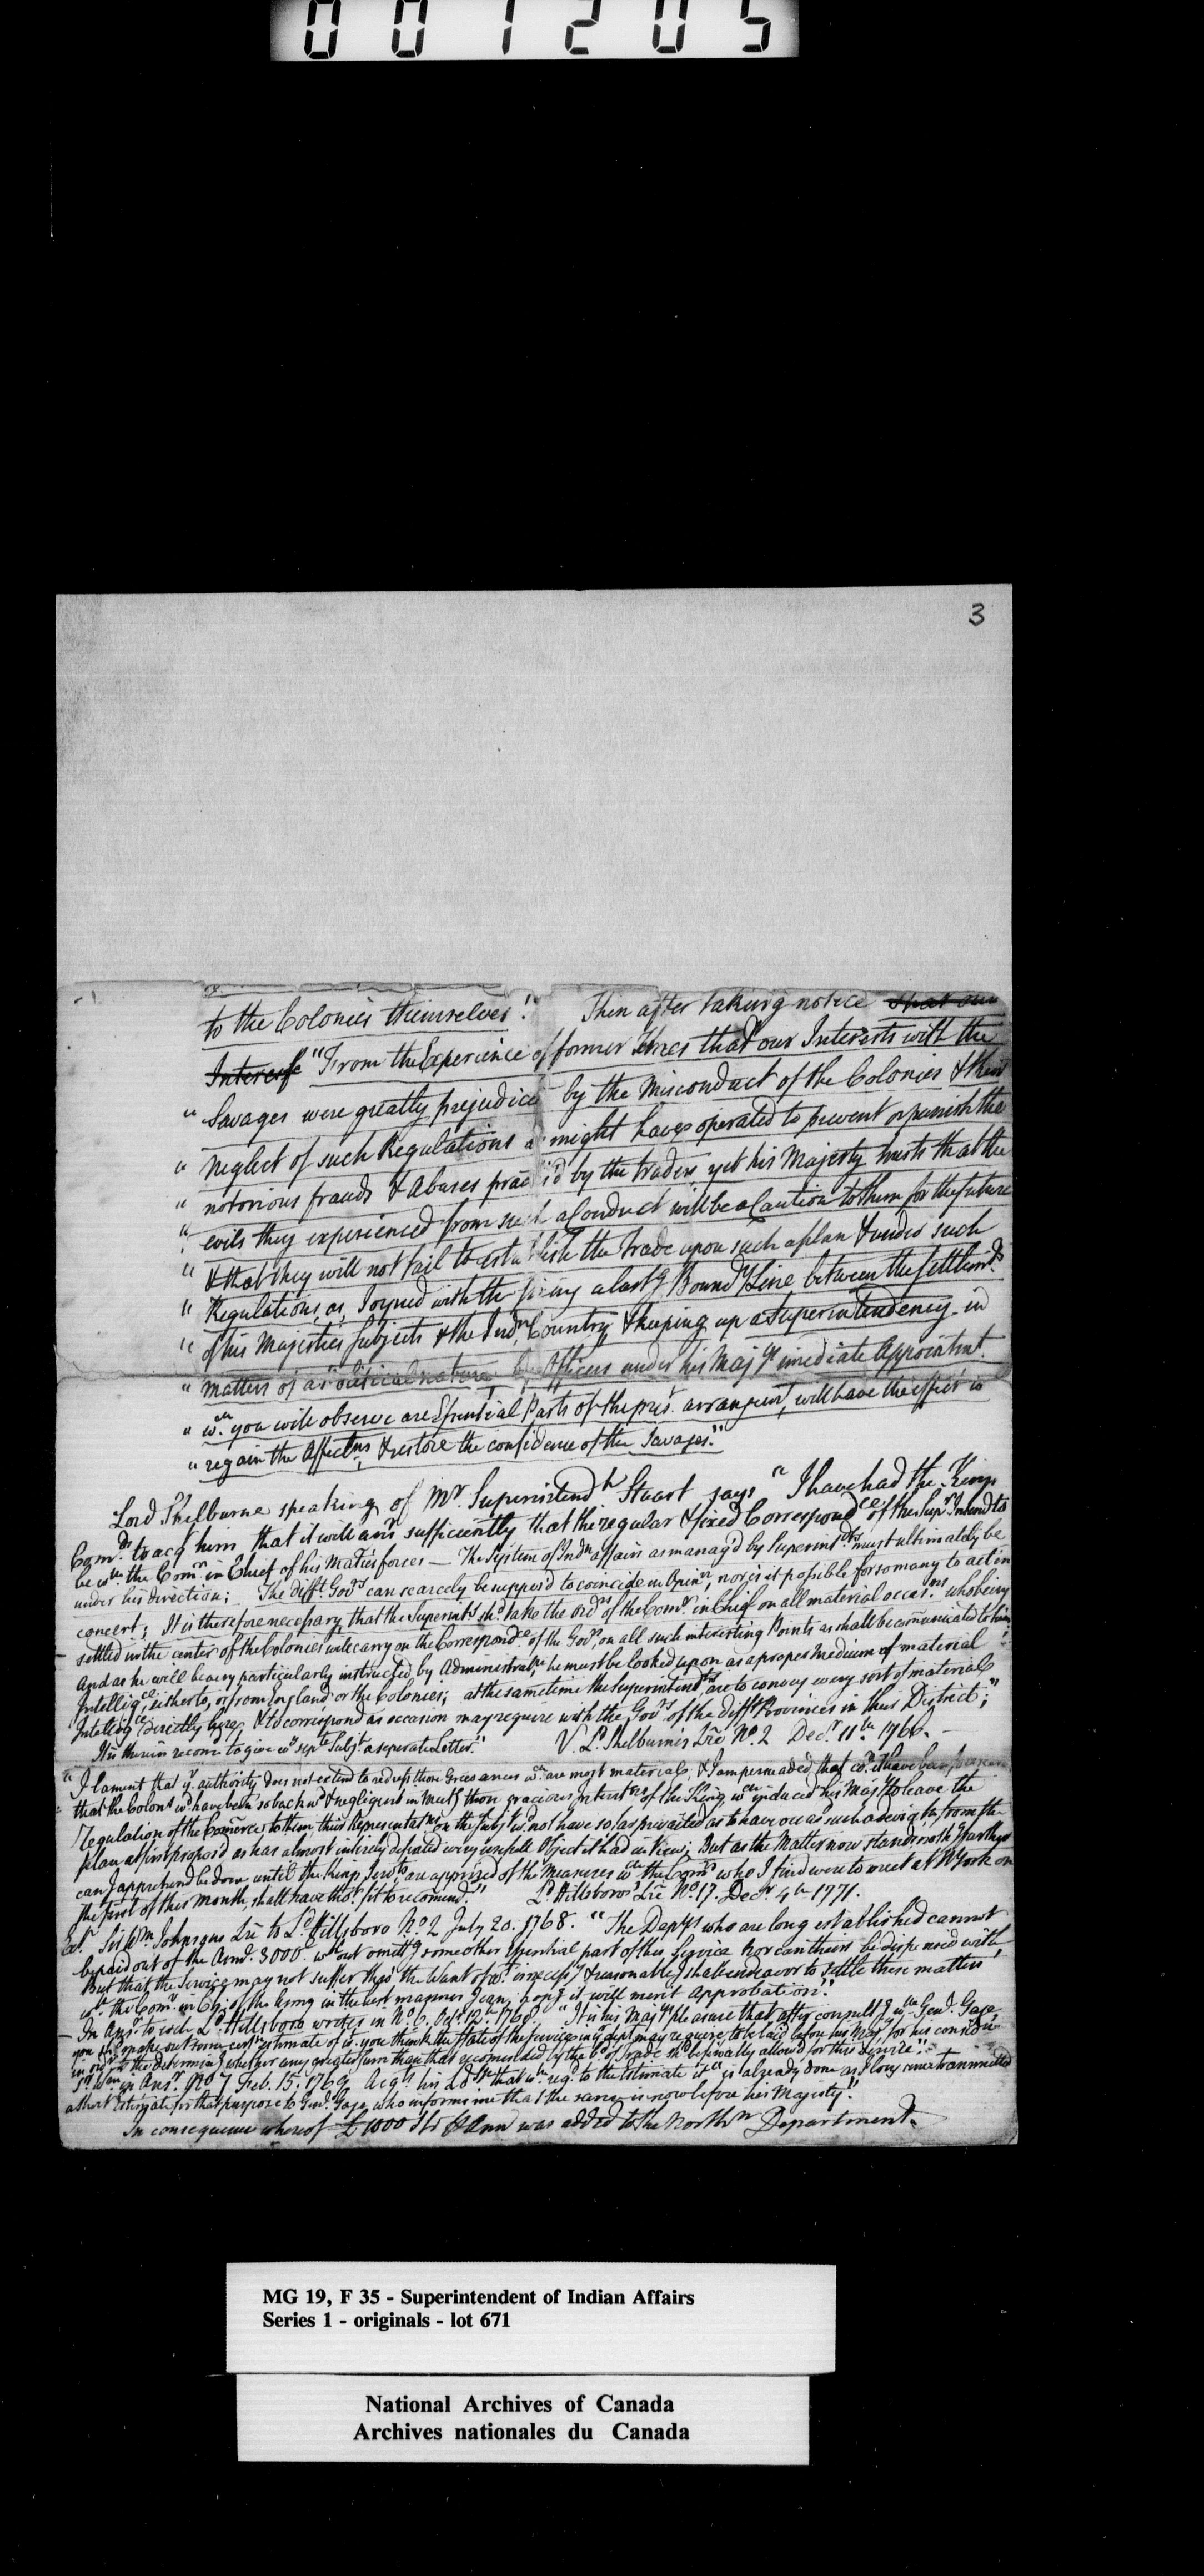 001205
3
to the Colonies themselves." Then after taking notice that our
Interests "From the Experience of former times that our Interests with the
" Savages were greatly prejudiced by the Misconduct of the Colonies & their
" neglect of such Regulations as might have operated to prevent or punish the
" notorious frauds & Abuses practis'd by the traders, yet his Majesty trusts that the
" evils they experienced from such a Conduct will be a Caution to them for the future
" & that they will not fail to establish the trade upon such a plan & under such
" Regulations, as, Joyned with the fixing a lastg. Boundy Line between the settlemts.
" of his Majesties subjects & the Indn. Country, & keeping up a Superintendency in
" matters of a political nature, by Officers under his Majtys. imediate Appointmt.
" wch. you will observe are Essential Parts of the prest. arrangemt, will have the effect to
" regain the Affectns, & restore the confidence of the Savages."
Lord Shelburne speaking of Mr. Superintendt. Stuart says "I have had the Kings
Comds. to acqt. him that it will ansr. sufficiently that the regular & fixed Correspondce of the Supr.Intendts
be wth. the Comr. in Chief of his Maties forces — The System of Indn. affairs as manag'd by Superintdts must ultimately be
under his direction; The difft. Govrs. can scarcely be suppos'd to coincide in Opinn, nor is it possible for so many to act in
concert; It is therefore necessary, that the Superints. shd. take the ordrs of the Comr. in Chief on all material occasns. who being
settled in the center of the Colonies will carry on the Correspondce of the Govrs, on all such interesting Points as shall be comunicated to him
And as he will be very particularly instructed by Administratn, he must be looked upon as a proper Medium of material
Intelligce, either to, or from England or the Colonies; at the same time the Superintendts are to convey every sort of material
Intelligce directly here, & to correspond as occasion may require with the Govrs of the difft Provinces in their District;"
It is therein recomd. to give each septe. Subjt a seperate Letter." V. Ld. Shelburne's Lre No. 2 Decr. 11th. 1766. —
" I lament that yr. authority does not extend to redress those Greevances wch. are most material, & I am perswaded, that
that the Colonys wd. have been so backwd. & negligent in meetg those gracious Intentns of the King wch. induced his Majty to leave the
Regulation of the Comerce to them, their Representatns on the Subjt wd. not have so far prevailed as to have occasd. such a deviatn, from the
plan at first propos'd as has almost intirely defeated every usefull Object it had in View; But as the Matter now stands nothg. farther
can, I apprehend be done, until the Kings Servts. are apprized of the Measures wch. the Comrs. who I find were to meet at N York on
the first of this month, shall have thot. fit to recomend." Ld. Hillsboros. Lre No. 17. Decr. 4th. 1771.
Ext. Sir Wm. Johnsons Lre to Ld. Hillsboro No. 2 July 20. 1768. "The Deptys who are long established cannot
be paid out of the Amt. 3000. without omittg some other essential part of this Service nor can theirs be dispensed with,
But that the Service may not suffer thro' the Want of wt. is necessy & reasonable I shall endeavor to settle these matters
wth. the Comr. in Chf. of the Army in the best manner I can, hopg. it will merit approbation."
— In Ansr. to wch. Ld. Hillsboro writes in No. 6. Octr. 12th. 1768. "It is his Majtys. pleasure that, after consultg wth. Genl. Gage
you shd. make out some certn. estimate of wt. you think the State of the Service in yr. dept. may require, to be laid before his Majty. for his consider.
in ordr. to the determing whether any greater sum than that recomended by the Bd. of Trade shd. be finally allowed for this Service." —
Sr. Wm. in Ansr. No. 7 Feb. 15. 1769 Acqts his Ldshp. that wth. regd. to the Estimate it is already done as I long since transmitted
a short Estimate for that purpose to Genl. Gage, who informs me that the same is now before his Majesty."
In consequence whereof £1000 Str. Ann was added to the Northn. Department.
MG 19, F 35 - Superintendent of Indian Affairs
Series 1 - originals - lot 671
National Archives of Canada
Archives nationales du Canada